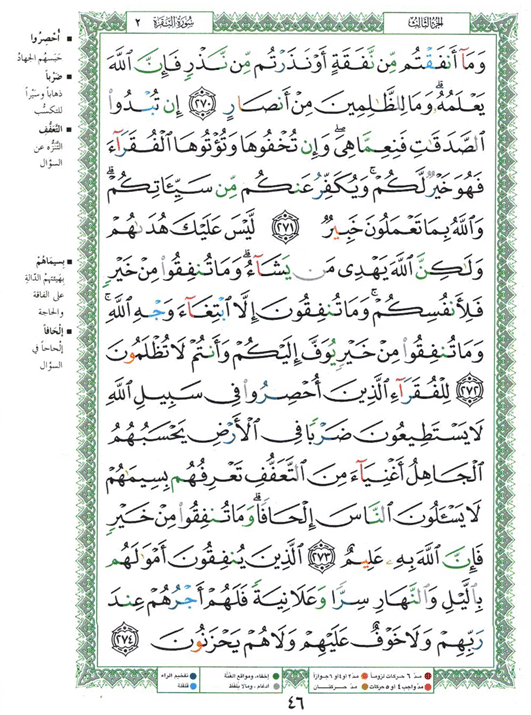 الجزء الثالث
سورة البقرة
٢
وَمَآ أَنفَقْتُم مِّن نَّفَقَةٍ أَوْ نَذَرْتُم مِّن نَّذْرٍ فَإِنَّ ٱللَّهَ
يَعْلَمُهُۥ وَمَا لِلظَّٰلِمِينَ مِنْ أَنصَارٍ ﴿٢٧٠﴾ إِن تُبْدُوا۟
ٱلصَّدَقَٰتِ فَنِعِمَّا هِىَ وَإِن تُخْفُوهَا وَتُؤْتُوهَا ٱلْفُقَرَآءَ
فَهُوَ خَيْرٌ لَّكُمْ وَيُكَفِّرُ عَنكُم مِّن سَيِّـَٔاتِكُمْ
وَٱللَّهُ بِمَا تَعْمَلُونَ خَبِيرٌ ﴿٢٧١﴾ لَّيْسَ عَلَيْكَ هُدَىٰهُمْ
وَلَٰكِنَّ ٱللَّهَ يَهْدِى مَن يَشَآءُ وَمَا تُنفِقُوا۟ مِنْ خَيْرٍ
فَلِأَنفُسِكُمْ وَمَا تُنفِقُونَ إِلَّا ٱبْتِغَآءَ وَجْهِ ٱللَّهِ
وَمَا تُنفِقُوا۟ مِنْ خَيْرٍ يُوَفَّ إِلَيْكُمْ وَأَنتُمْ لَا تُظْلَمُونَ
﴿٢٧٢﴾ لِلْفُقَرَآءِ ٱلَّذِينَ أُحْصِرُوا۟ فِى سَبِيلِ ٱللَّهِ
لَا يَسْتَطِيعُونَ ضَرْبًا فِى ٱلْأَرْضِ يَحْسَبُهُمُ
ٱلْجَاهِلُ أَغْنِيَآءَ مِنَ ٱلتَّعَفُّفِ تَعْرِفُهُم بِسِيمَٰهُمْ
لَا يَسْـَٔلُونَ ٱلنَّاسَ إِلْحَافًا وَمَا تُنفِقُوا۟ مِنْ خَيْرٍ
فَإِنَّ ٱللَّهَ بِهِۦ عَلِيمٌ ﴿٢٧٣﴾ ٱلَّذِينَ يُنفِقُونَ أَمْوَٰلَهُم
بِٱلَّيْلِ وَٱلنَّهَارِ سِرًّا وَعَلَانِيَةً فَلَهُمْ أَجْرُهُمْ عِندَ
رَبِّهِمْ وَلَا خَوْفٌ عَلَيْهِمْ وَلَا هُمْ يَحْزَنُونَ ﴿٢٧٤﴾
أُحْصِرُوا
حَبَسَهُم الجهادُ
ضَرْباً
ذهاباً وسَيْراً
للتكسُّب
التَّعَفُّفِ
التَّنَزُّه عن
السؤال
بِسِيمَاهُمْ
بهَيْئتِهِمْ الدَّالةِ
على الفاقة
والحاجة
إلْحَافاً
إلحاحاً في
السؤال
مدّ ٦ حركات لزوماً
مدّ ٢ أو ٤ أو ٦ جوازاً
إخفاء، ومواقع الغنّة
تفخيم الراء
مدّ واجب ٤ أو ٥ حركات
مدّ حركتان
ادغام، ومالا يلفظ
قلقلة
٤٦